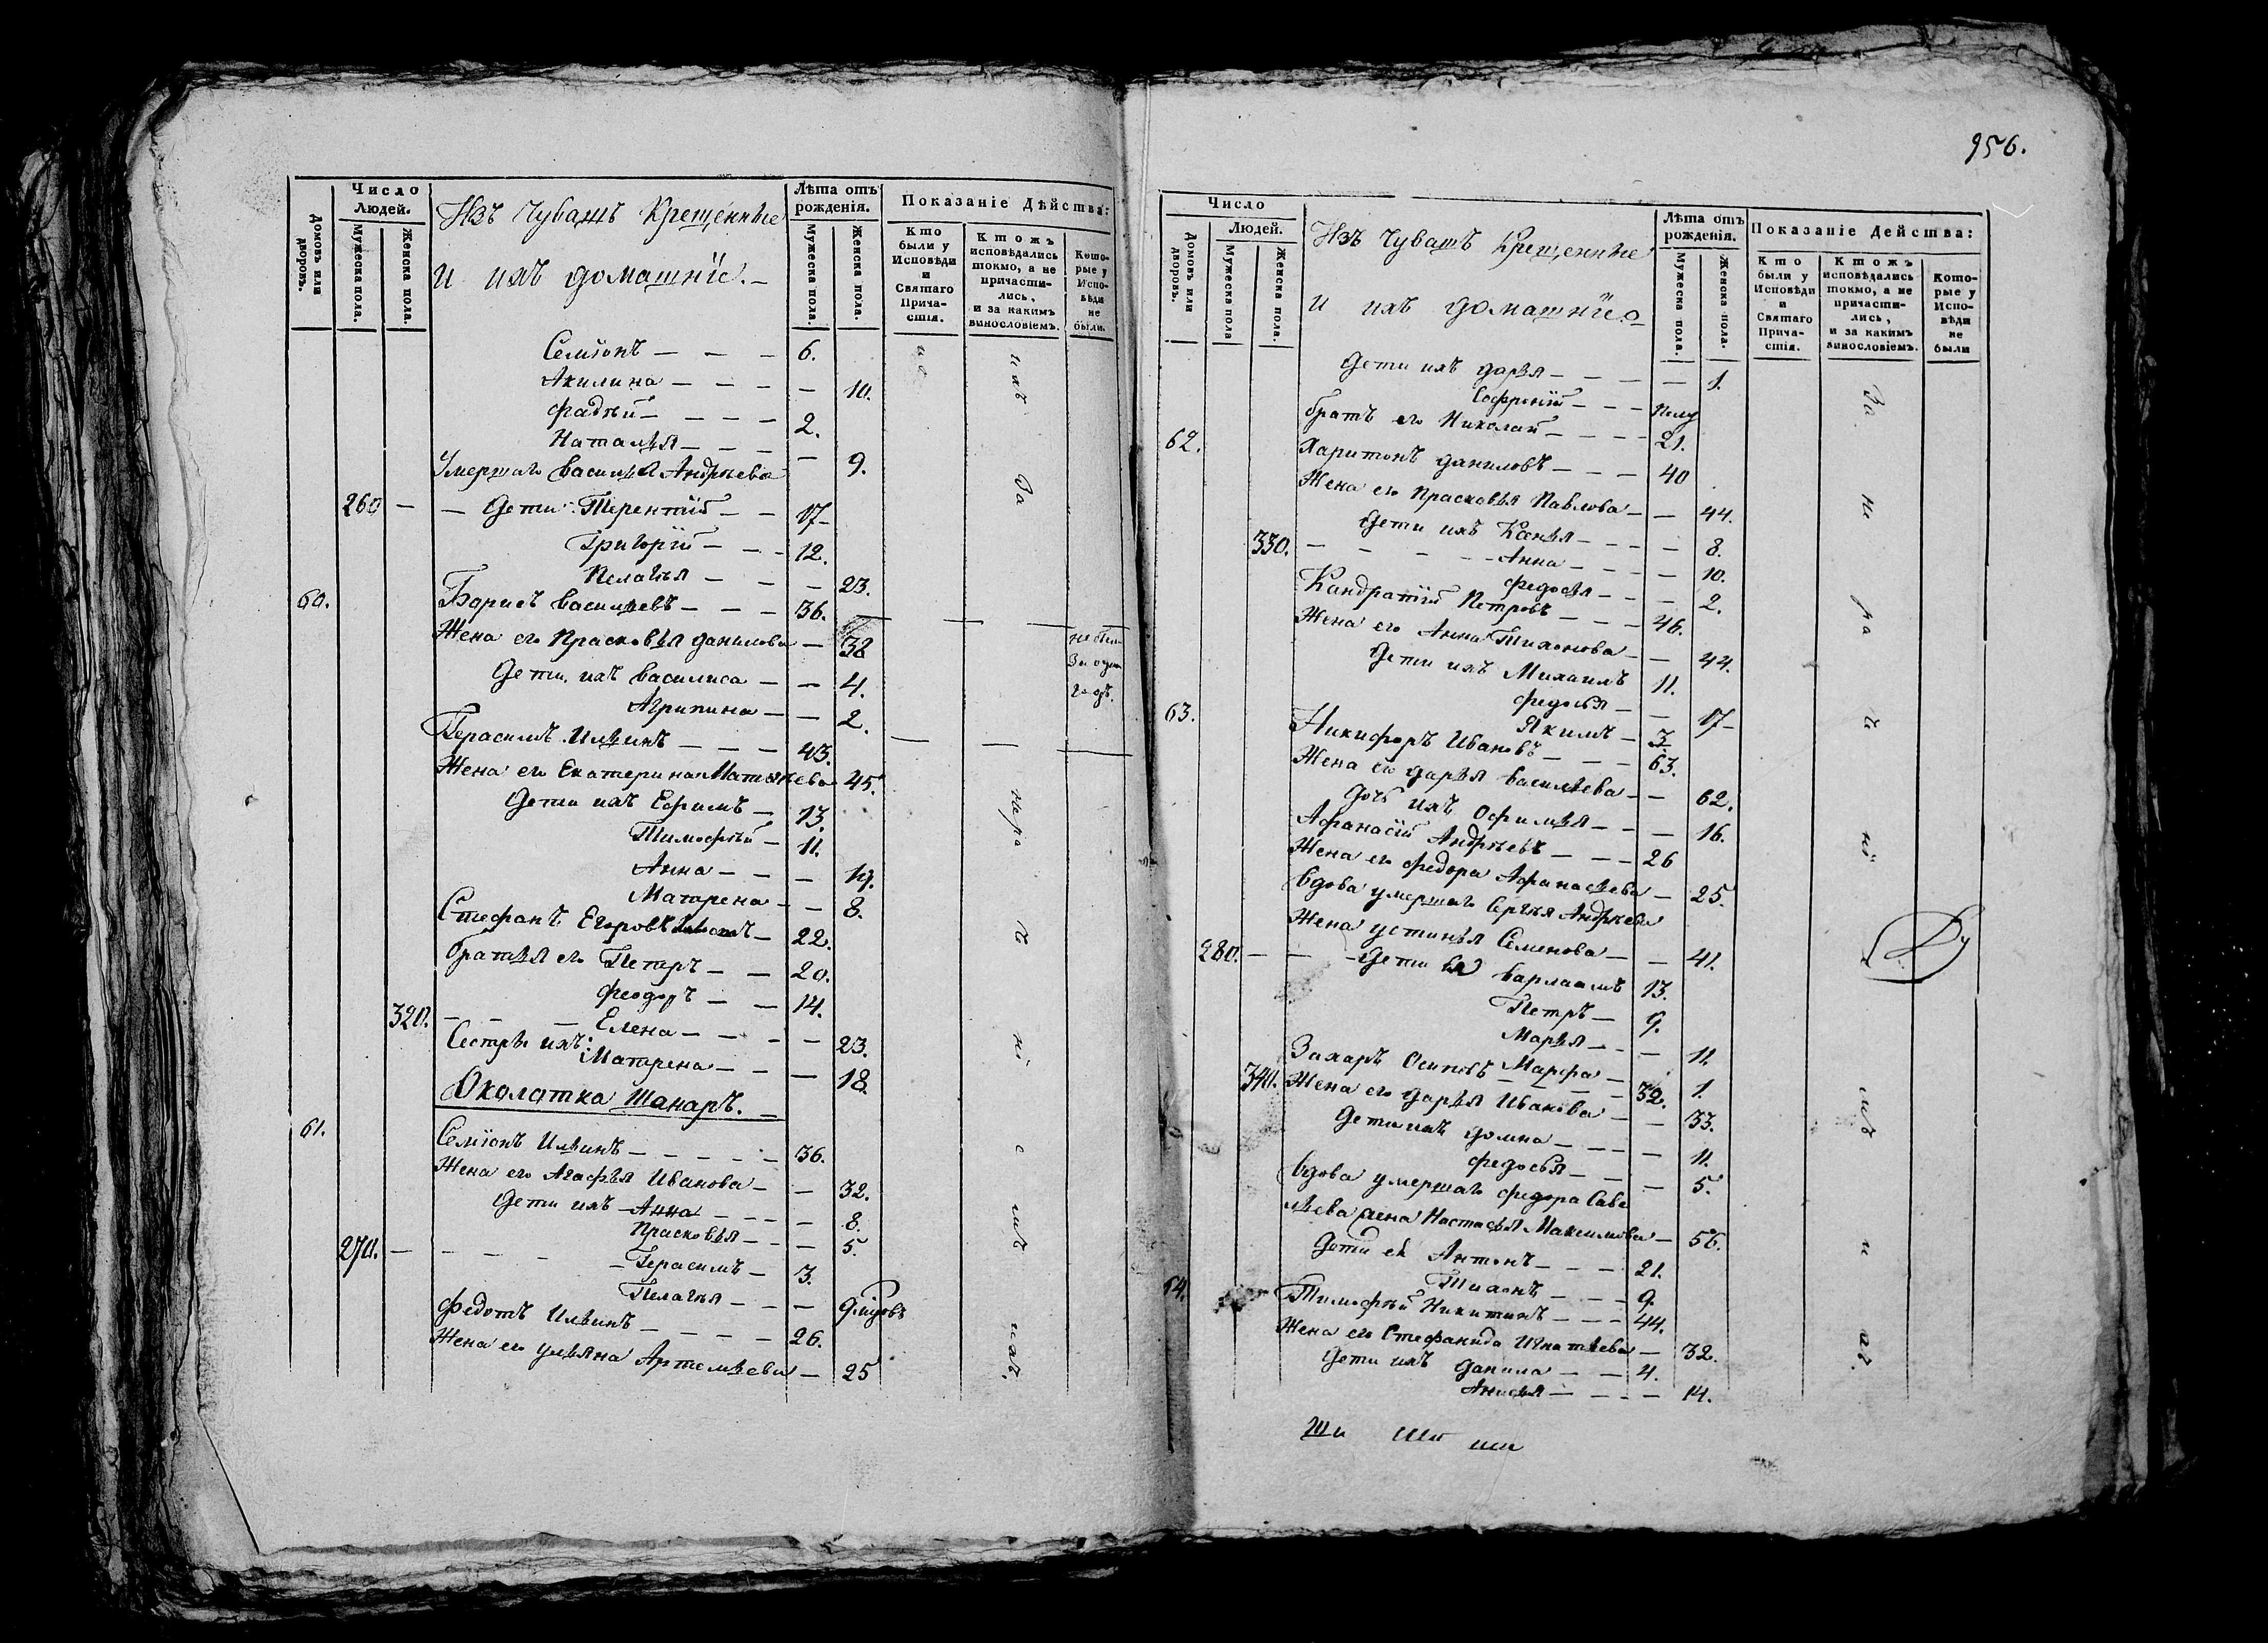 Число Людей.
Домовъ или дворовъ.
Мужеска пола.
Женска пола.
Изъ Чувашъ Крещенные
и ихъ домашніе.
Лѣта отъ рожденія.
Мужеска пола.
Женска пола.
Показаніе Дѣйства:
Кто были у Исповѣди и Святаго Прича-стія.
Ктожъ исповѣдались токмо, а не причасти-лись, и за какимъ винословіемъ.
Кото-рые у Испо-вѣди не были.
Семіонъ — — — 6.
Акилина — — — — 10.
Фадѣй — — — — 2.
Наталья — — — — 9.
Умершаго Василья Андрѣева
260 — — Дети: Терентій — — 17
Григорій — — — 12.
Пелагья — — — 23.
60. Борисъ Васильевъ — — — 36.
Жена его Прасковья Данилова — 38
Дети ихъ Василиса — — 4.
Агрипина — — 2.
Герасимъ Ильинъ — — — 43.
Жена его Екатерина Матвѣева 45.
Дети ихъ Ефимъ — 13.
Тимофѣй — 11.
Анна — — — 19.
Матрена — — 8.
Стефанъ Егоровъ — 22.
Братья его Петръ — — 20.
Феодоръ — — 14.
320. — — — Елена — — — — 23.
Сестры ихъ: Матрена — — — 18.
Околотка Шанаръ. —
61. Семіонъ Ильинъ — — — — — 36.
Жена его Агафья Иванова — — 32.
Дети ихъ — Анна — — — — 8.
Прасковья — — — 5.
270. — — — — — Герасимъ — 3.
Пелагья — — —
Федотъ Ильинъ — — — — — 26.
Жена его Ульяна Артемьева — 25
за
не
ра
че
ні
е
мъ
956.
Число Людей.
Домовъ или дворовъ.
Мужеска пола
Женска пола.
Изъ Чувашъ Крещенные
и ихъ домашніе
Лѣта отъ рожденія.
Мужеска пола.
Женска пола.
Показаніе Действа:
Кто были у Исповѣди и Святаго Прича-стія.
Ктожъ исповѣдались токмо, а не причасти-лись, и за какимъ винословіемъ.
Кото-рые у Испо-вѣди не были
Дети ихъ Дарья — — — — — 1.
Софроній — — — полу
Братъ его Николай — — — — 21.
62. Харитонъ Даниловъ — — — 40
Жена его Прасковья Павлова — — 44.
Дети ихъ Ксенья — — — — 8.
330. — — — — — Анна — — — — 10.
Федосья — — — 2.
Кандратій Петровъ — — — 46.
Жена его Анна Тихонова — — 44.
Дети ихъ Михаилъ 11.
Федосья — — 17
Якимъ — 3.
63. Никифоръ Ивановъ — — — 63.
Жена его Дарья Васильева — — 62.
Дочь ихъ Офимья — — — 16.
Афанасій Андрѣевъ — — — 26
Жена его Федора Афанасьева — 25.
Вдова умершаго Сергѣя Андрѣева
Жена Устинья Семенова — — 41.
280. — — — Дети ея Варлаамъ 13.
Петръ — 9.
Марья — — — 11.
340. Марфа — 1.
Захаръ Осиповъ — — — — 32.
Жена его Дарья Иванова — — 33.
Дети ихъ Домна — — — — 11.
Федосья — — — 5.
Вдова умершаго Федора Саве
льева жена Настасья Максимова — 56.
Дети ея Антонъ — — — 21.
Тихонъ — — — 9.
64. Тимофѣй Никитинъ — — — 44.
Жена его Стефанида Игнатьева — 32.
Дети ихъ Данила — — 4.
Анисья — — — — 14.
За
не
ра
че
ні
е
мъ
и
хъ.